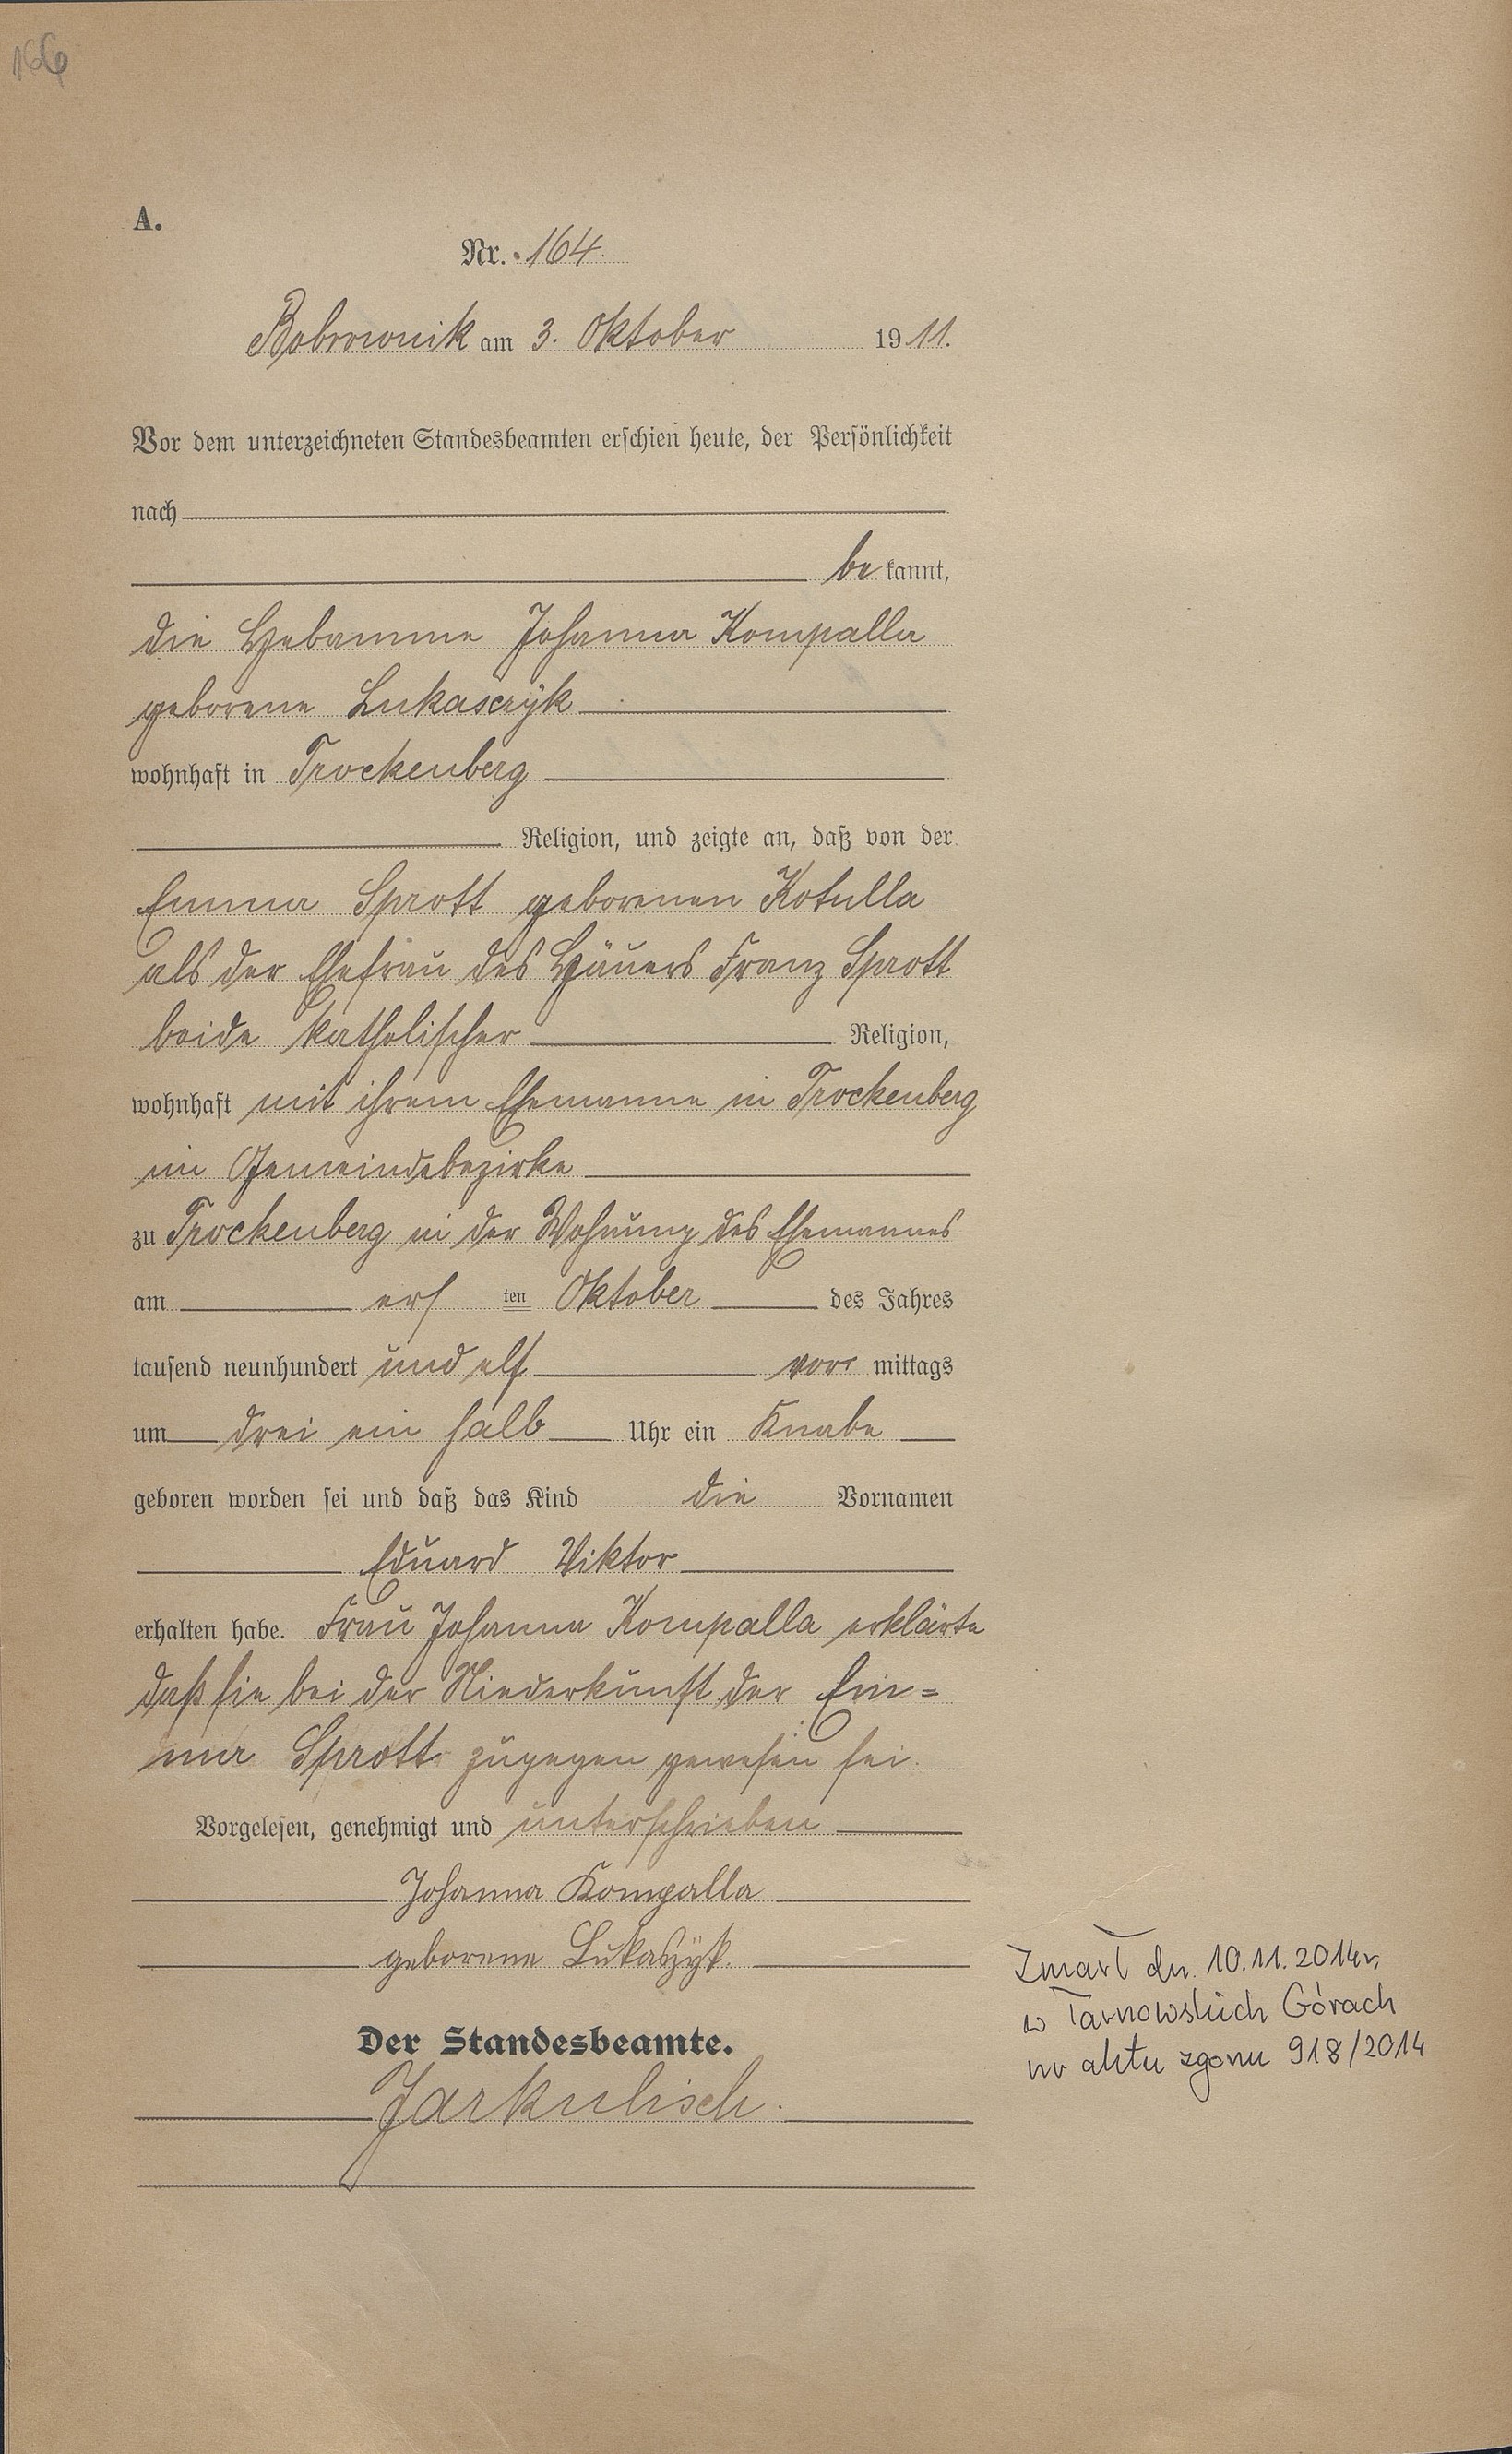 166
A.
Nr. 164.
Bobrownik am 3. Oktober 1911.
Vor dem unterzeichneten Standesbeamten erschien heute, der Persönlichkeit
nach
be kannt,
die Hebamme Johanna Kompalla
geborene Lukasczÿk
wohnhaft in Trockenberg
Religion, und zeigte an, daß von der
Emma Sprott geborenen Kotulla
als der Ehefrau des Häuers Franz Sprott
beide katholischer Religion,
wohnhaft mit ihrem Ehemanne in Trockenberg
im Gemeindebezirke
zu Trockenberg in der Wohnung des Ehemannes
am ers ten Oktober des Jahres
tausend neunhundert und elf vor mittags
um drei ein halb Uhr ein Knabe
geboren worden sei und daß das Kind die Vornamen
Eduard Viktor
erhalten habe. Frau Johanna Kompalla erklärte
daß sie bei der Niederkunft der Em=
ma Sprott zugegen gewesen sei.
Vorgelesen, genehmigt und unterschrieben
Johanna Kompalla
geborene Lukaszÿk.
Der Standesbeamte.
Jarkulisch.
Zmarł dn. 10.11.2014r.
w Tarnowskich Górach
nr aktu zgonu 918/2014